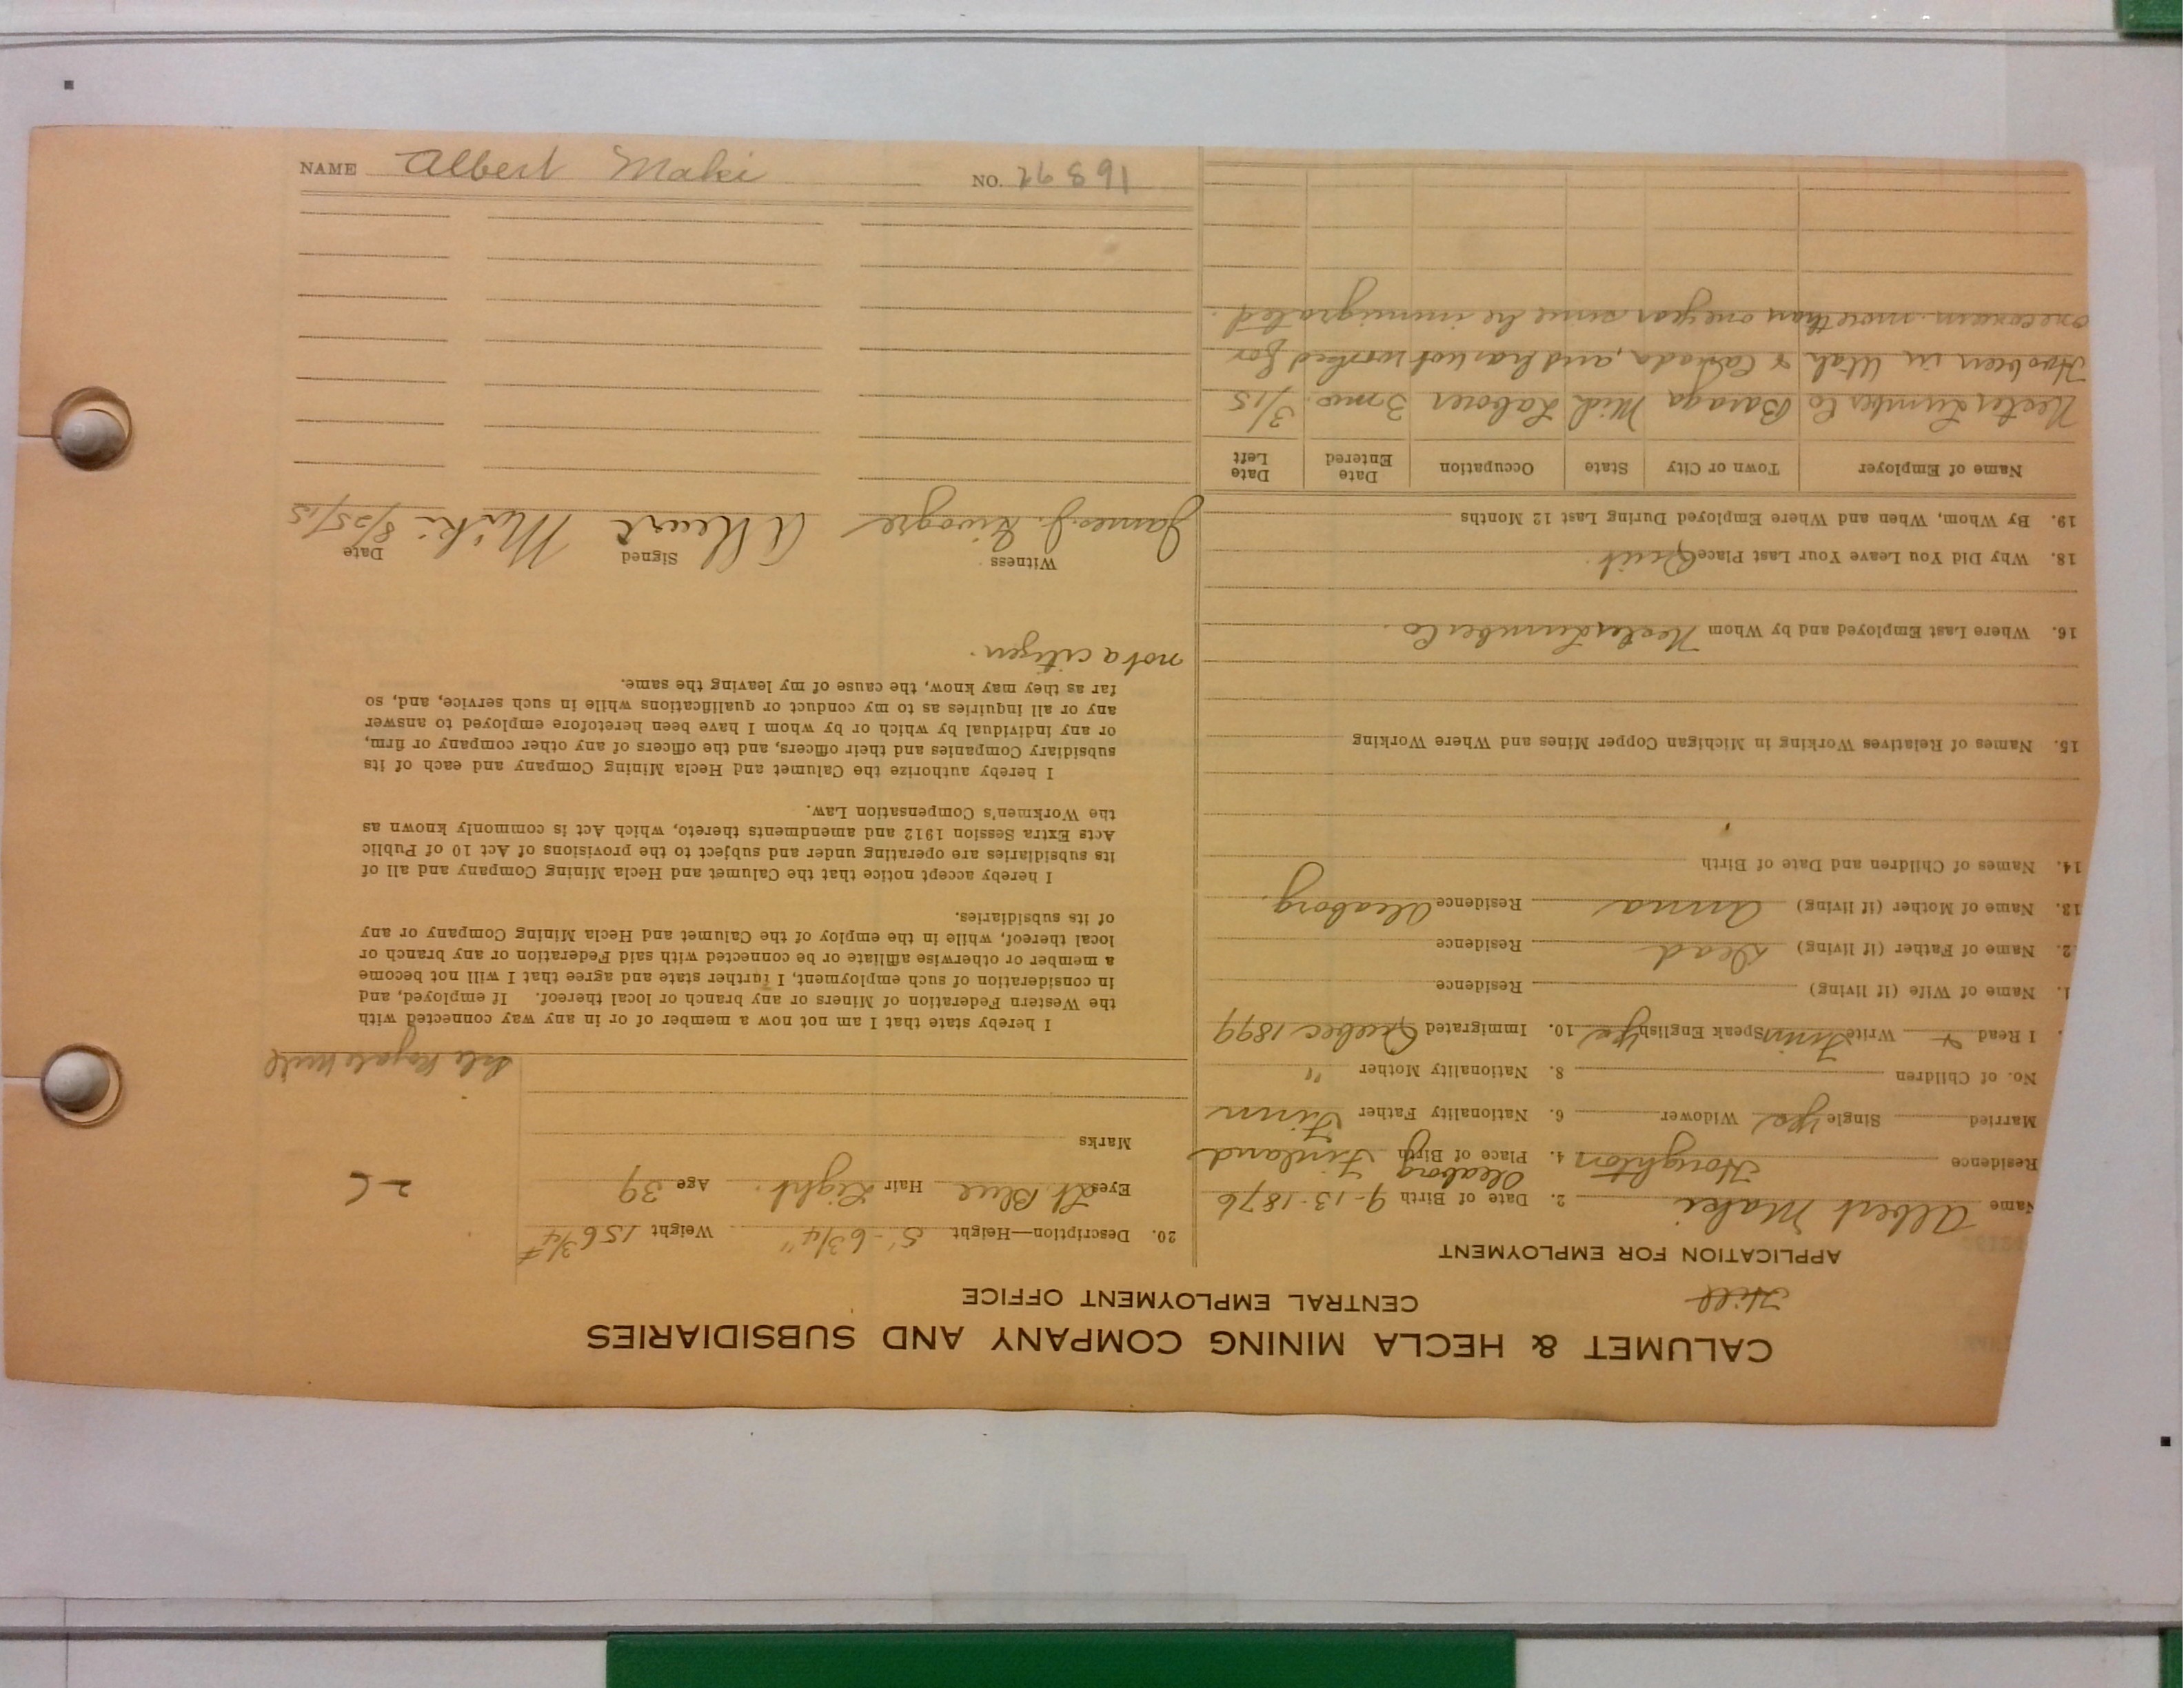 CALUMET & HECLA MINING COMPANY AND SUBSIDIARIES
Hill
CENTRAL EMPLOYMENT OFFICE
APPLICATION FOR EMPLOYMENT
Name Albert Maki 2. Date of Birth 9-13-1876
Residence Houghton 4. Place of Birth Uleaborg Finland
Married Single Yes Widower 6. Nationality Father Finn
No. of Children 8. Nationality Mother "
I Read & Write Finn Speak English Yes 10. Immigrated Quebec 1899
1. Name of Wife (if living) Residence
2. Name of Father (if living) Dead Residence
13. Name of Mother (if living) Anna Residence Uleaborg.
14. Names of Children and Date of Birth
15. Names of Relatives Working in Michigan Copper Mines and Where Working
16. Where Last Employed and by Whom Nester Lumber Co.
18. Why Did You Leave Your Last Place Quit.
19. By Whom, When and Where Employed During Last 12 Months
Name of Employer Town or City State Occupation Date Entered Date Left
Nester Lumber Co Baraga Mich Laborer 3 mo. 3/15
Has been in Utah & Canada, and has not worked for
one concern more than one year since he immigrated.
20. Description—Height 5'-6 3/4" Weight 156 3/4 #
Eyes Lt Blue Hair Light. Age 39
2-C
Marks
Isle Royale Mill
I hereby state that I am not now a member of or in any way connected with
the Western Federation of Miners or any branch or local thereof. If employed, and
in consideration of such employment, I further state and agree that I will not become
a member or otherwise affiliate or be connected with said Federation or any branch or
local thereof, while in the employ of the Calumet and Hecla Mining Company or any
of its subsidiaries.
I hereby accept notice that the Calumet and Hecla Mining Company and all of
its subsidiaries are operating under and subject to the provisions of Act 10 of Public
Acts Extra Session 1912 and amendments thereto, which Act is commonly known as
the Workmen's Compensation Law.
I hereby authorize the Calumet and Hecla Mining Company and each of its
subsidiary Companies and their officers, and the officers of any other company or firm,
or any individual by which or by whom I have been heretofore employed to answer
any or all inquiries as to my conduct or qualifications while in such service, and, so
far as they may know, the cause of my leaving the same.
not a citizen.
Witness Signed Date
James J. Maki 8/25/15
NAME Albert Maki NO.